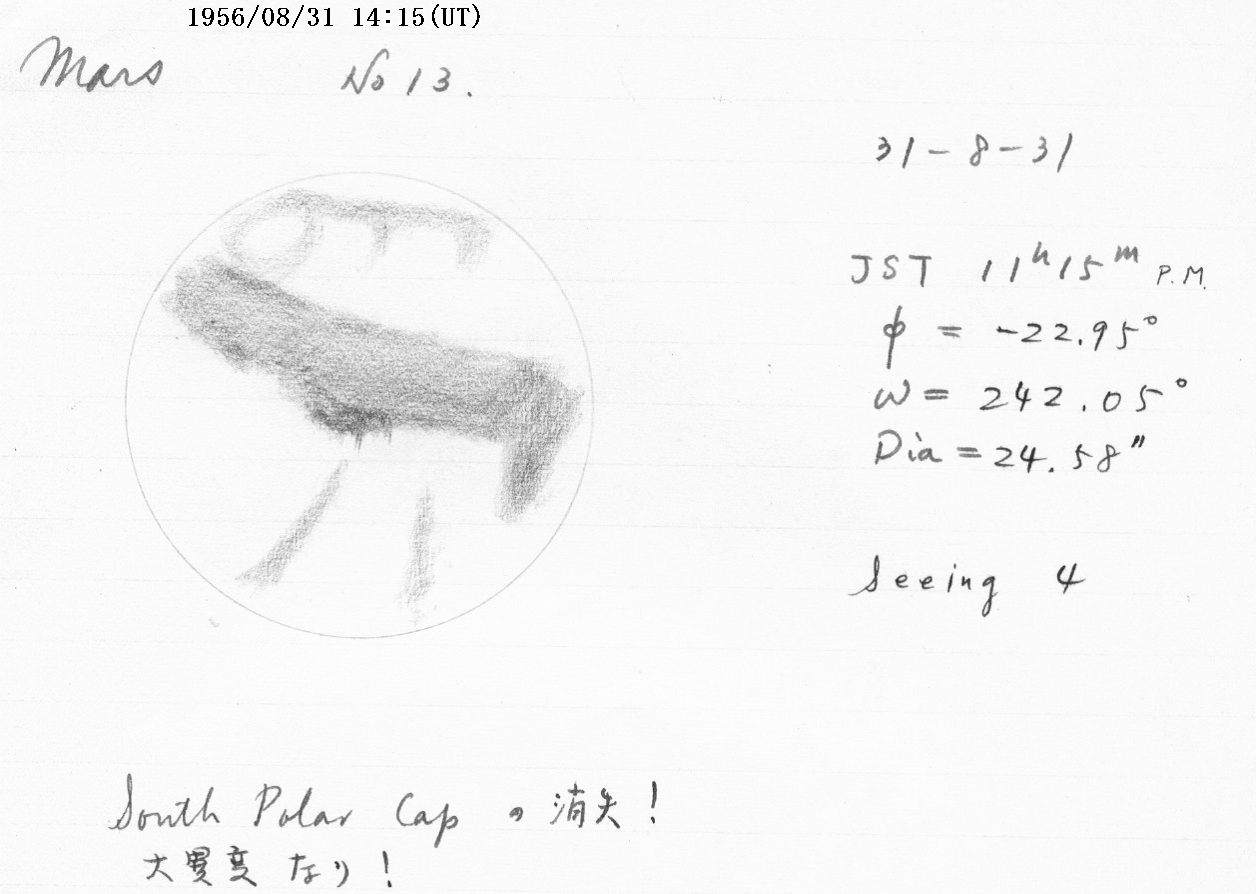 1956/08/31 14:15(UT)
Mars No 13.
31-8-31
JST 11h15m P.M.
ϕ = -22.95°
ω = 242.05°
Dia = 24.58"
Seeing 4
South Polar Cap の消失!
大異変なり!